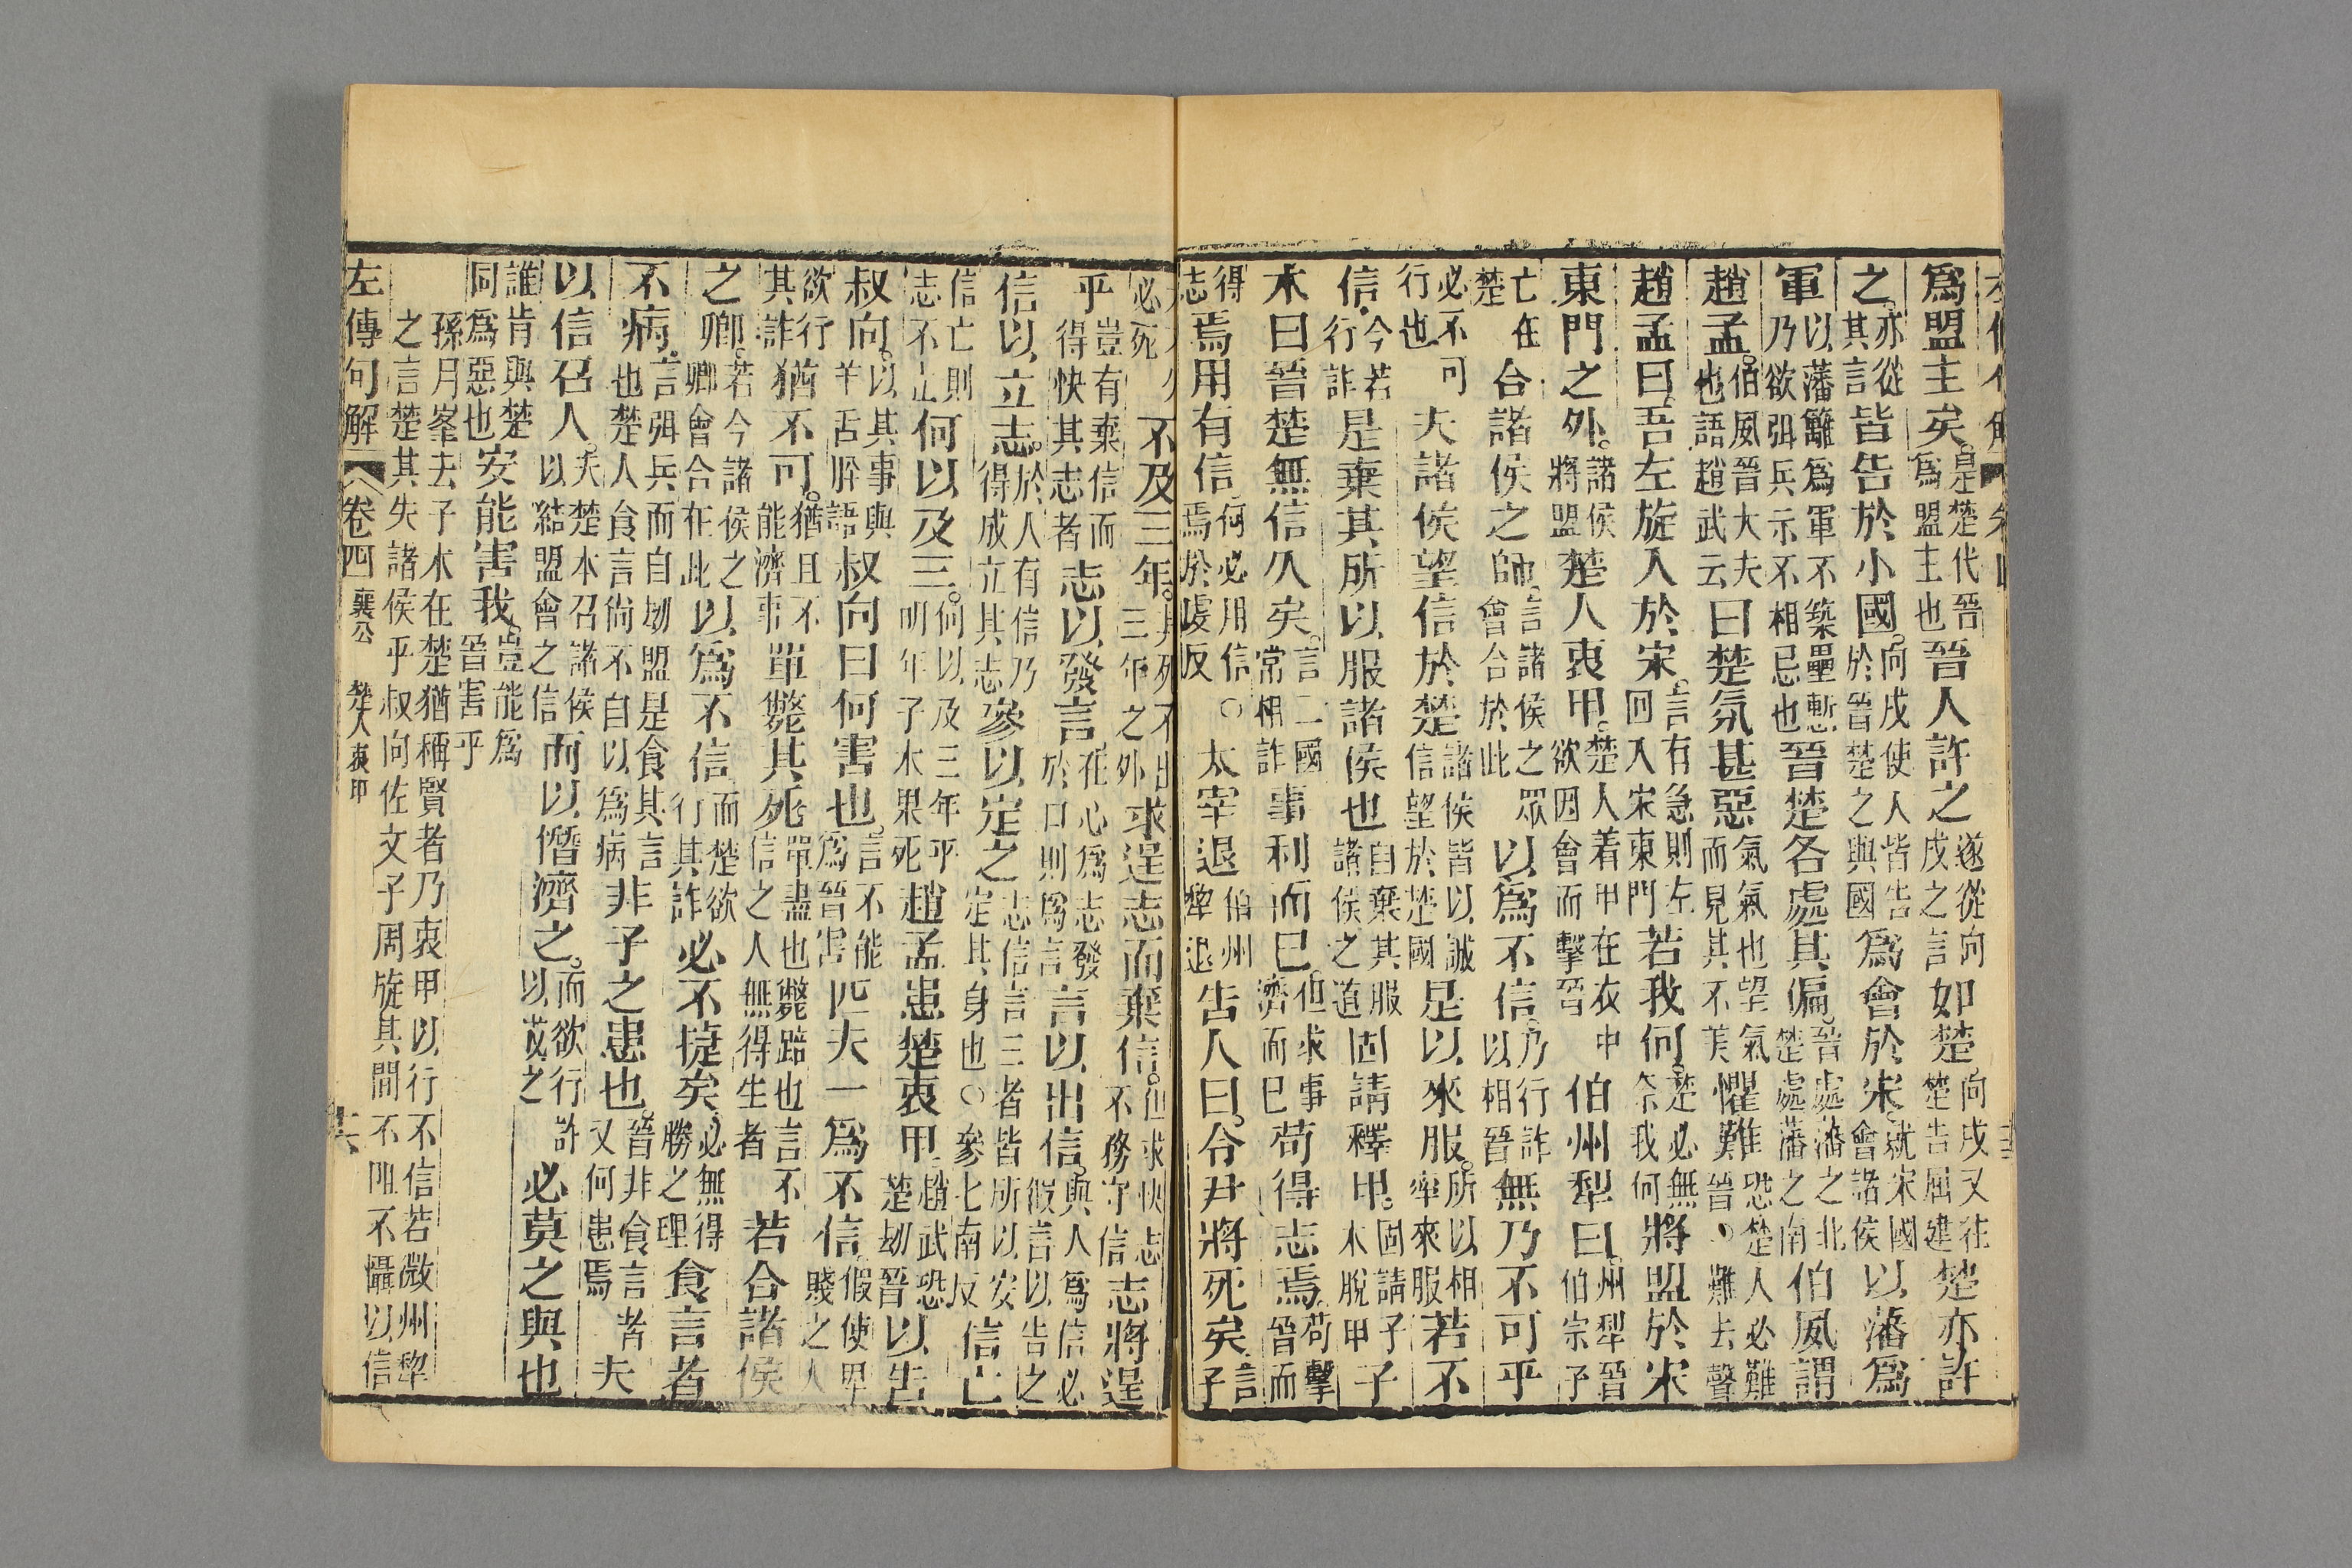 爲盟主矣是楚代晉爲盟主也晉人許之遂從向戌之言如楚向戌又往楚告屈建楚亦許
之亦從其言皆告於小國向戌使人皆告於晉楚之與國爲會於宋就宋國會諸侯以藩爲
軍以藩籬爲軍不築壘塹乃欲弭兵示不相忌也晉楚各處其偏晉處藩之北楚處藩之南伯夙謂
趙孟伯夙晉大夫也語趙武云曰楚氛甚惡氣氣也望氣而見其不美懼難恐楚人必難晉○難去聲
趙孟曰吾左旋入於宋言有急則左回入宋東門若我何楚必無奈我何將盟於宋
東門之外諸侯將盟楚人衷甲楚人着甲在衣中欲因會而擊晉伯州犁曰州犁晉伯宗子
亡在楚合諸侯之師言諸侯之眾會合於此以爲不信乃行詐以相晉無乃不可乎
必不可行也夫諸侯望信於楚諸侯皆以誠信望於楚國是以來服所以相率來服若不
信今若行詐是棄其所以服諸侯也自棄其服諸侯之道固請釋甲固請子木脫甲子
木曰晉楚無信久矣言二國常相詐事利而已但求事濟而已苟得志焉苟擊晉而
得志焉用有信何必用信焉於䖍反○太宰退伯州犂退告人曰令尹將死矣言子
必死不及三年其死不出三年之外求逞志而棄信但求快志不務守信志將逞
乎豈有棄信而得快其志者志以發言在心爲志發於口則爲言言以出信與人爲信必假言以告之
信以立志於人有信乃得成立其志參以定之志信言三者皆所以安定其身也○參七南反信亡
信亡則志不立何以及三何以及三年乎明年子木果死趙孟患楚衷甲趙武恐楚刼晉以告
叔向以其事與羊舌肸語叔向曰何害也言不能爲晉害匹夫一爲不信假使卑賤之人
欲行其詐猶不可猶且不能濟事單斃其死單盡也斃踣也言不信之人無得生者若合諸侯
之卿若今諸侯之卿會合在此以爲不信而楚欲行其詐必不捷矣必無得勝之理食言者
不病言弭兵而自刼盟是食其言也楚人食言尙不自以爲病非子之患也晉非食言者又何患焉夫
以信召人夫楚本召諸侯以結盟會之信而以僭濟之而欲行詐以茂之必莫之與也
誰肯與楚同爲惡也安能害我豈能爲晉害乎
孫月峯去子木在楚猶稱賢者乃衷甲以行不信若微州犂
之言楚其失諸侯乎叔向佐文子周旋其間不阻不懾以信
左傳句解 卷四 襄公 楚人衷甲